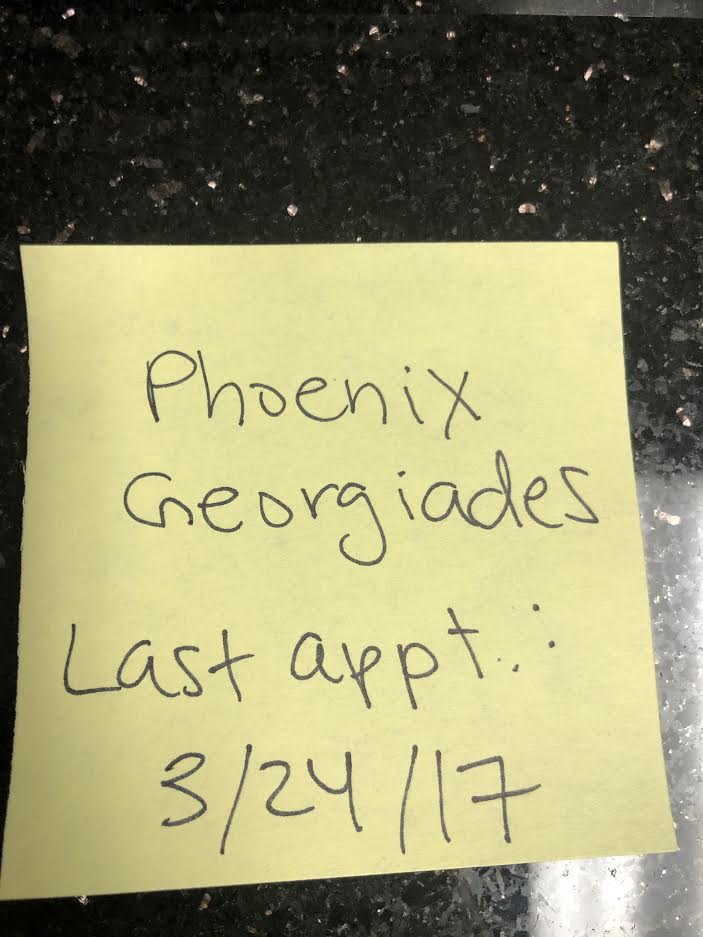 Phoenix
Georgiades
Last appt.:
3/24/17